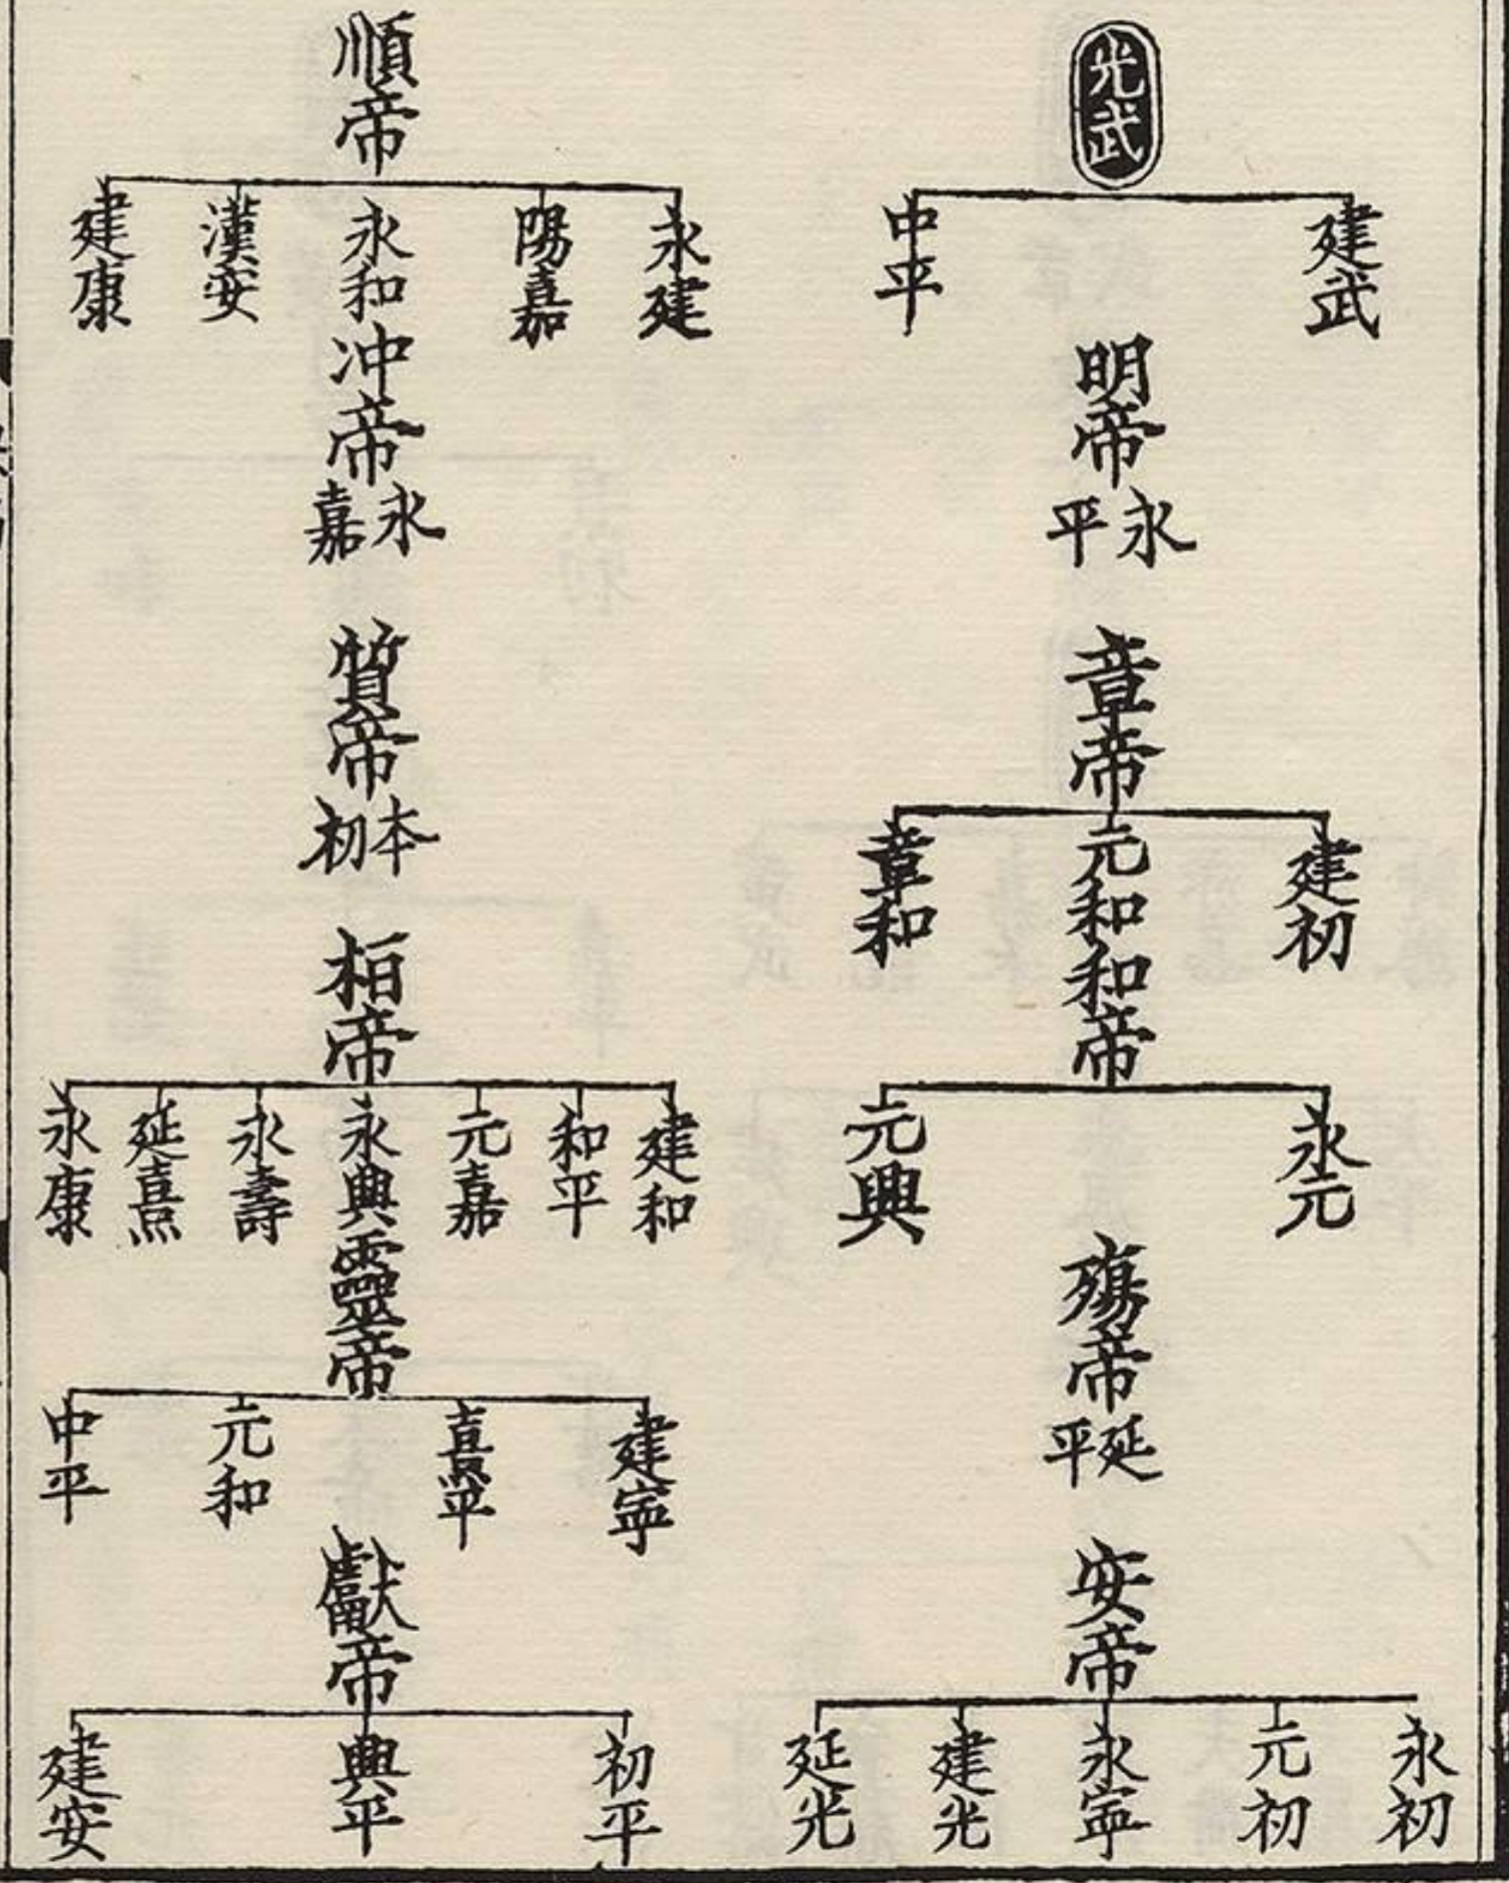 光武
建武
中平
明帝
永平
章帝
建初
元和
章和
和帝
永元
元興
殤帝
延平
安帝
永初
元初
永寍
建光
延光
順帝
永建
陽嘉
永和
漢安
建康
冲帝
永嘉
質帝
本初
栢帝
建和
和平
元嘉
永興
永壽
延熹
永康
靈帝
建寍
熹平
元和
中平
獻帝
初平
興平
建安